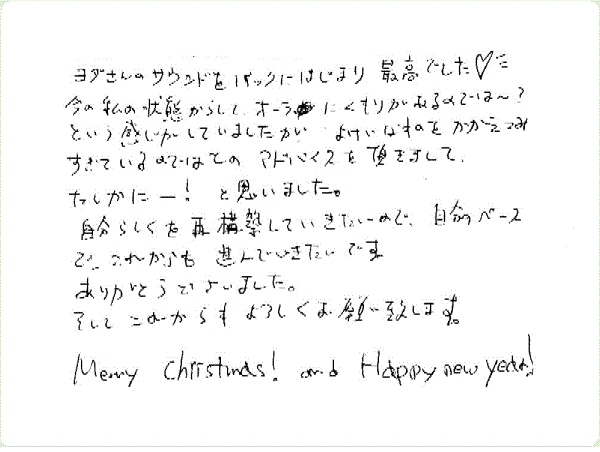 ヨダさんのサウンドをバックにはじまり 最高でした♡
今の私の状態からして オーラにくもりがあるのでは〜?
という感じがしていましたが よけいなものをかかえこみ
すぎているのではとの アドバイスを頂きまして、
たしかにー! と思いました。
自分らしくを再構築していきたいので、自分のペース
で、これからも 進んでいきたいです
ありがとうございました。
そして これからも よろしくお願い致します。
Merry Christmas! and Happy new year!